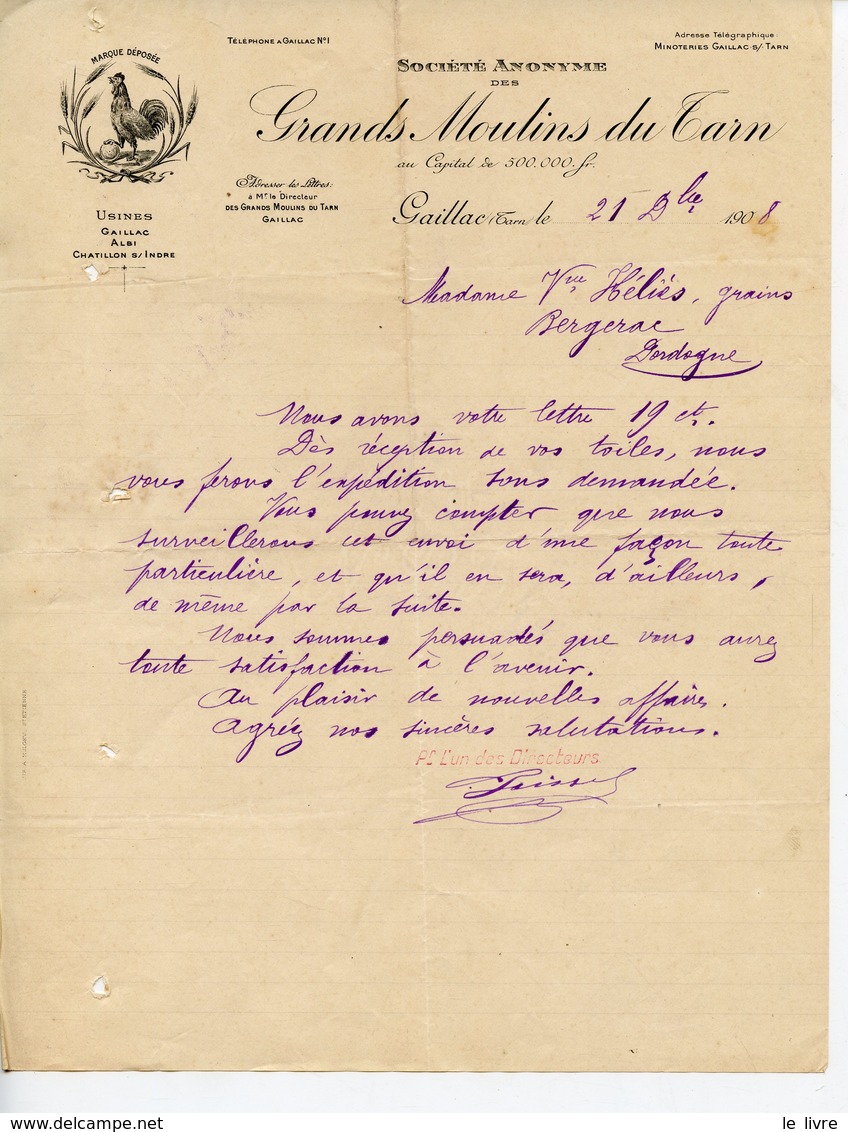 TÉLÉPHONE A GAILLAC N°1
Adresse Télégraphique
MINOTERIES GAILLAC-S/-TARN
MARQUE DÉPOSÉE
SOCIÉTÉ ANONYME
DES
Grands Moulins du Tarn
au Capital de 500.000. fr.
Adresser les Lettres:
à Mr le Directeur
DES GRANDS MOULINS DU TARN
GAILLAC
USINES
GAILLAC
ALBI
CHATILLON S/INDRE
Gaillac (Tarn) le 21 Dbre 1908
Madame Vve Héliès, grains
Bergerac
Dordogne
Nous avons votre lettre 19 ct.
Dès réception de vos toiles, nous
vous ferons l'expédition sons demandée.
Vous pouvez compter que nous
surveillerons cet envoi d'une façon toute
particulière, et qu'il en sera, d'ailleurs,
de même par la suite.
Nous sommes persuadés que vous aurez
toute satisfaction à l'avenir.
Au plaisir de nouvelles affaires.
Agréez nos sincères salutations.
Pr L'un des Directeurs
le livre